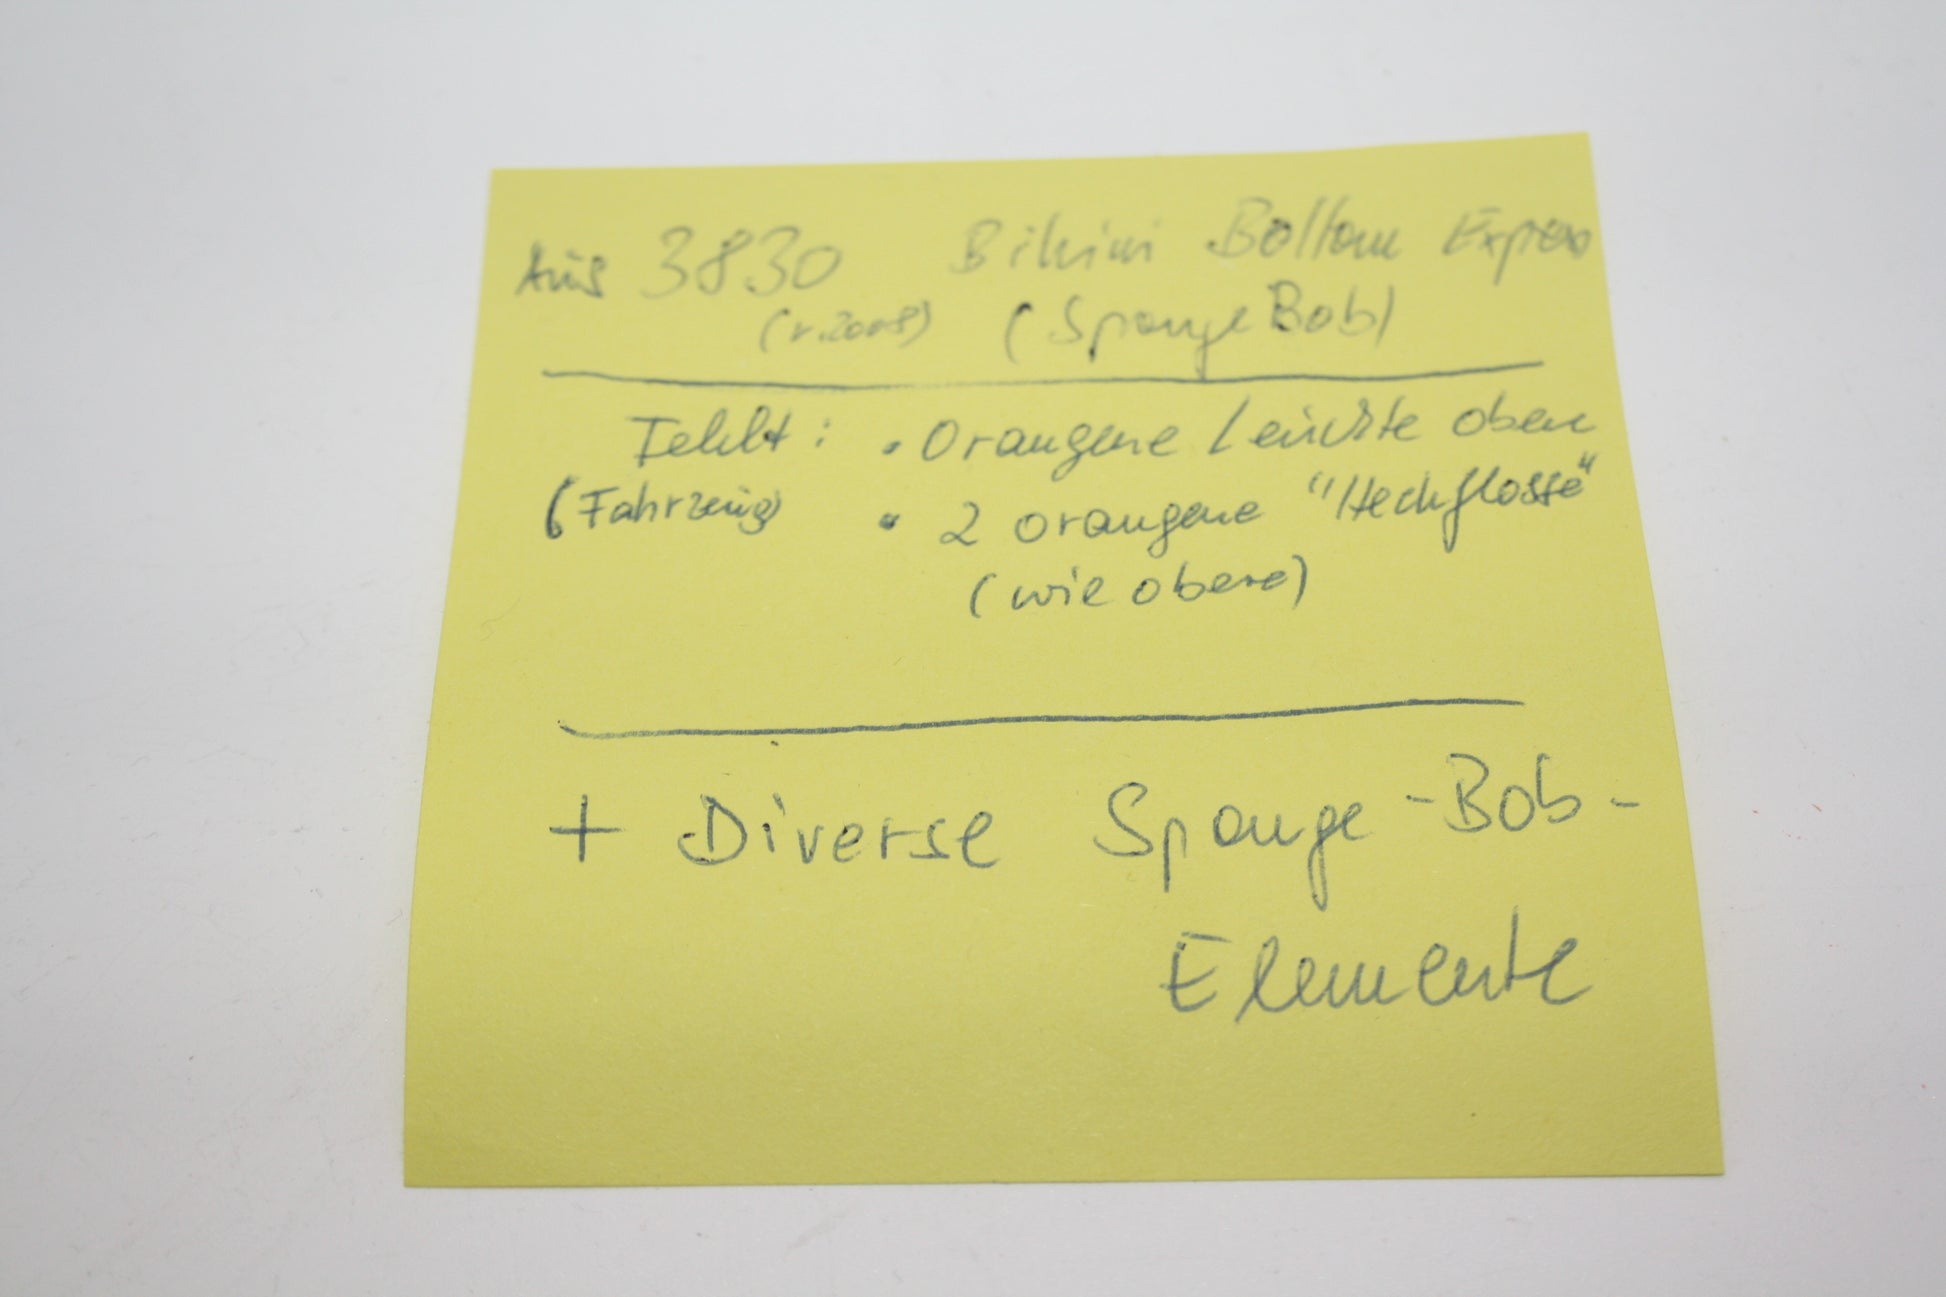 Aus 3830 Bikini Bottom Express
(v. 2008) (SpongeBob)
Fehlt: • Orangene Leuchte oben
(Fahrzeug) • 2 orangene "Heckflosse"
(wie obere)
+ Diverse Sponge-Bob-
Elemente